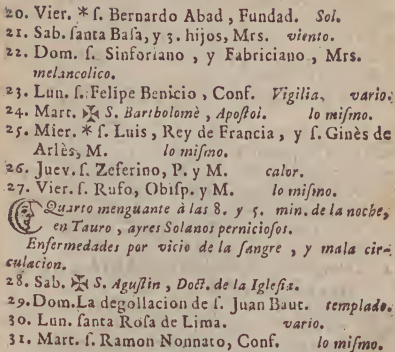 20. Vier. * ſ. Bernardo Abad, Fundad. Sol.
21. Sab. ſanta Baſa, y 3. hijos, Mrs. viento.
22. Dom. ſ. Sinforiano, y Fabriciano, Mrs.
melancolico.
23. Lun. ſ. Felipe Benicio, Conf. Vigilia, vario.
24. Mart. ✠ S. Bartholomè, Apoſtol. lo miſmo.
25. Mier. * ſ. Luis, Rey de Francia, y ſ. Ginès de
Arlès, M. lo miſmo.
26. Juev. ſ. Zeferino, P. y M. calor.
27. Vier. ſ. Rufo, Obiſp. y M. lo miſmo.
Quarto menguante à las 8. y 5. min. de la noche,
en Tauro, ayres Solanos pernicioſos.
Enfermedades por vicio de la ſangre, y mala cir-
culacion.
28. Sab. ✠ S. Aguſtin, Doct. de la Igleſia.
29. Dom. La degollacion de ſ. Juan Baut. templado.
30. Lun. ſanta Roſa de Lima. vario.
31. Mart. ſ. Ramon Nonnato, Conf. lo miſmo.